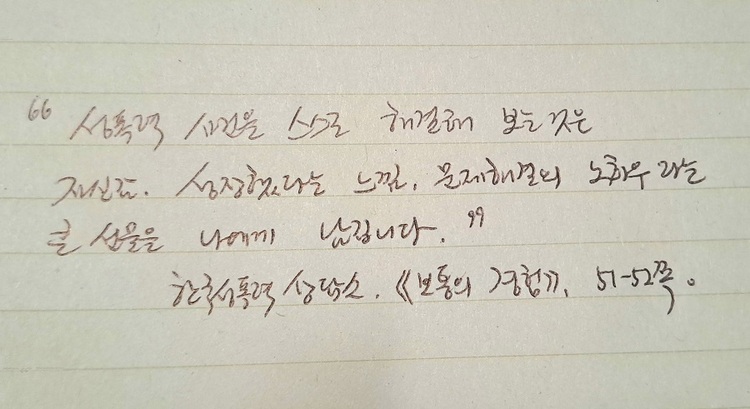 “성폭력 사건을 스스로 해결해 보는 것은
자신감, 성장했다는 느낌, 문제해결의 노하우라는
큰 선물을 나에게 남깁니다.”
한국성폭력상담소, 《보통의 경험》, 51-52쪽.